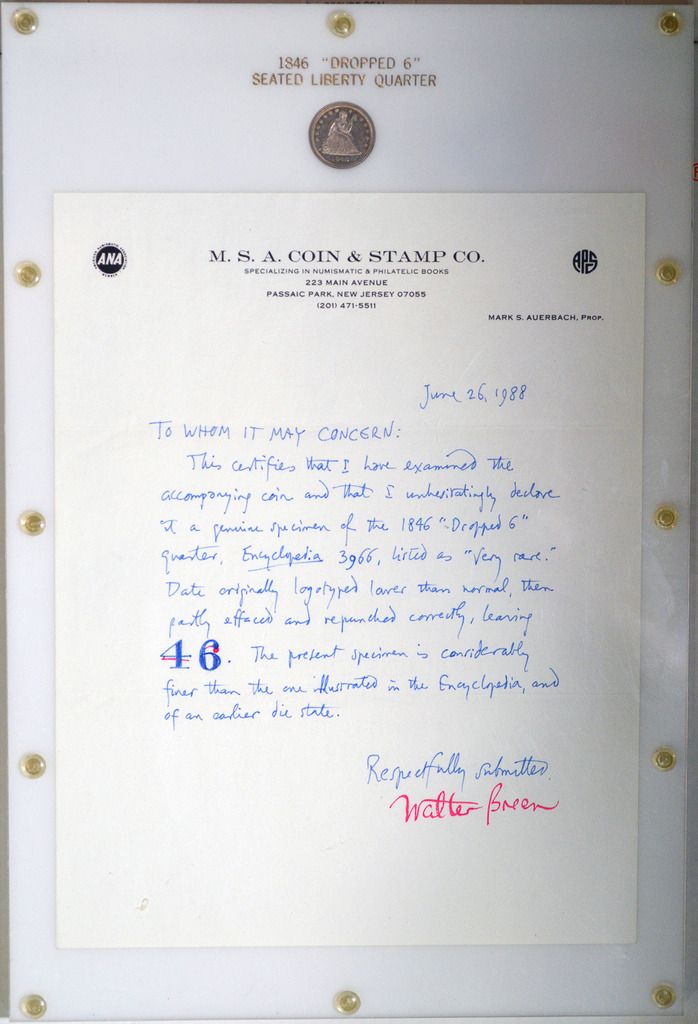 1846 "DROPPED 6"
SEATED LIBERTY QUARTER
ANA
M. S. A. COIN & STAMP CO.
APS
SPECIALIZING IN NUMISMATIC & PHILATELIC BOOKS
223 MAIN AVENUE
PASSAIC PARK, NEW JERSEY 07055
(201) 471-5511
MARK S. AUERBACH, PROP.
June 26, 1988
TO WHOM IT MAY CONCERN:
This certifies that I have examined the
accompanying coin and that I unhesitatingly declare
it a genuine specimen of the 1846 "Dropped 6"
quarter, Encyclopedia 3966, listed as "Very rare."
Date originally logotyped lower than normal, then
partly effaced and repunched correctly, leaving
46. The present specimen is considerably
finer than the one illustrated in the Encyclopedia, and
of an earlier die state.
Respectfully submitted.
Walter Breen